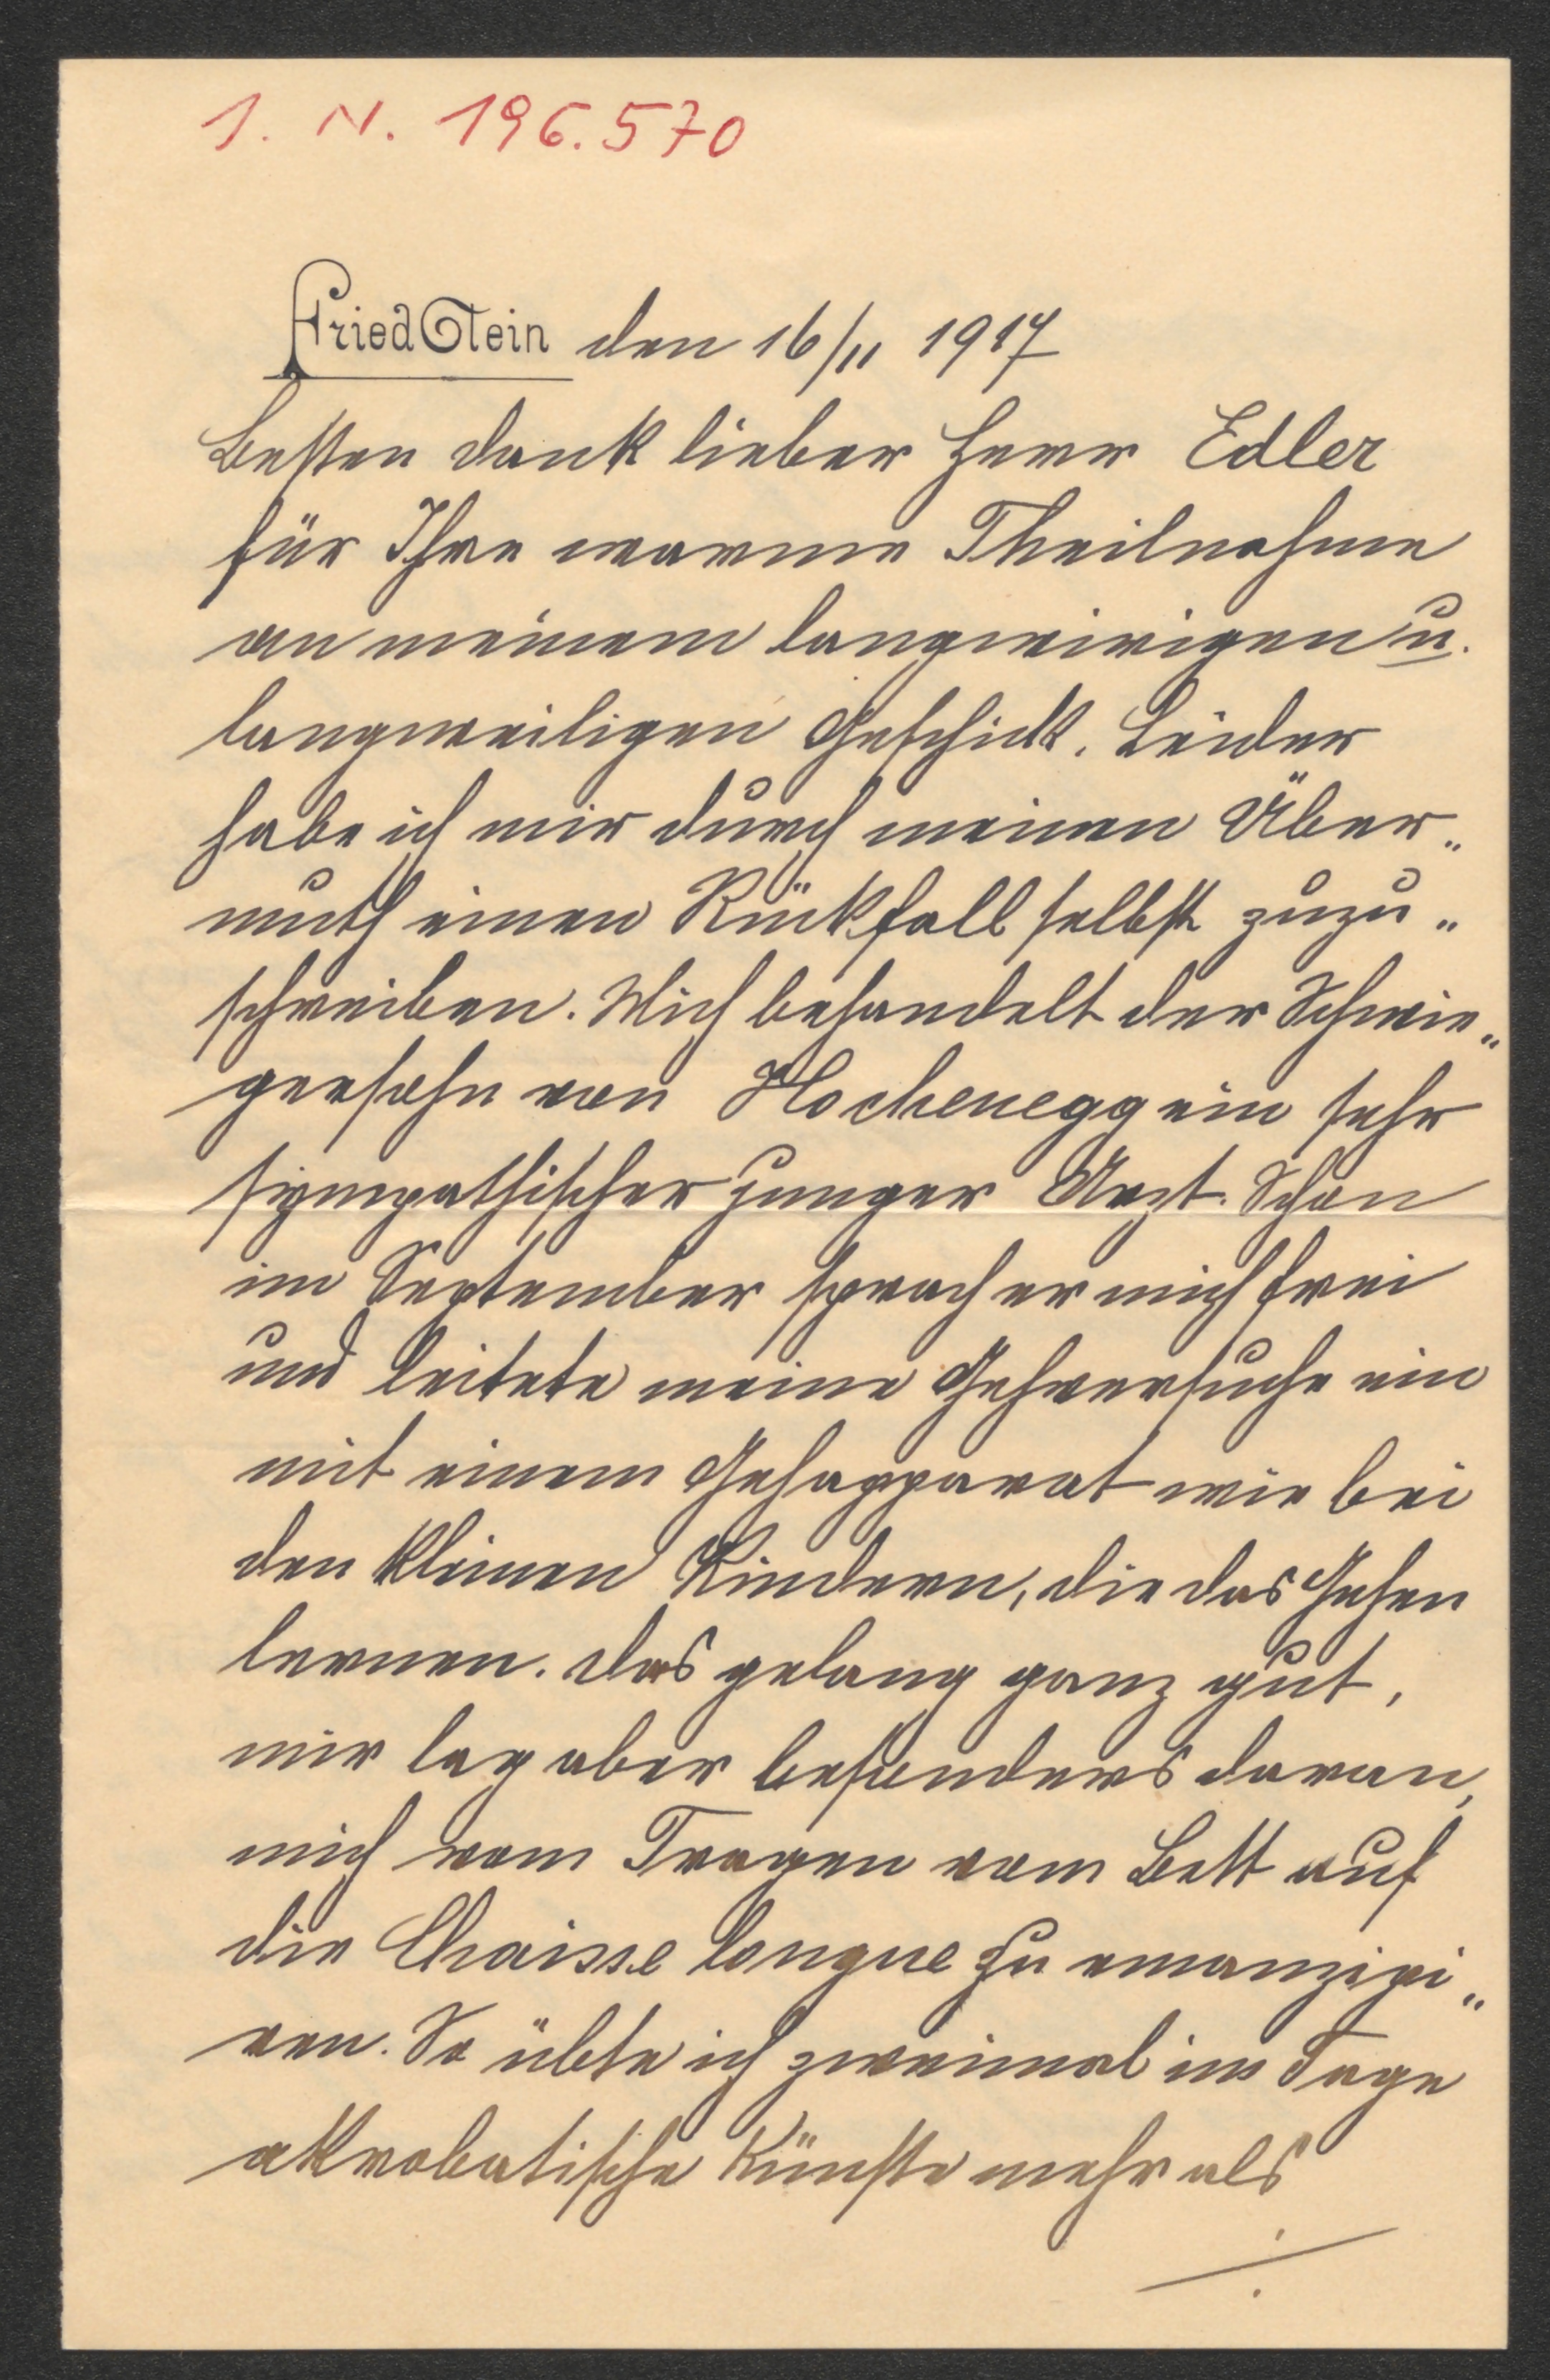 I. N. 196.570
FriedStein den 16/11 1917
Besten Dank lieber Herr Edler
für Ihre warme Theilnahme
an meinem langwierigen u.
langweiligen Geschick. Leider
habe ich mir durch meinen Über„
muth einen Rückfall selbst zuzu„
schreiben. Mich behandelt der Schwie„
gersohn von Hochenegg ein sehr
sympathischer junger Arzt. Schon
im September sprach er mich frei
und leitete meine Gehversuche ein
mit einem Gehapparat wie bei
den kleinen Kindern, die das Gehen
lernen. Das gelang ganz gut,
mir lag aber besonders daran,
mich vom Tragen vom Bett auf
die Chaisse longue zu emanzipi„
ren. So übte ich zweimal im Tage
akrobatische Künste mehr als
./.